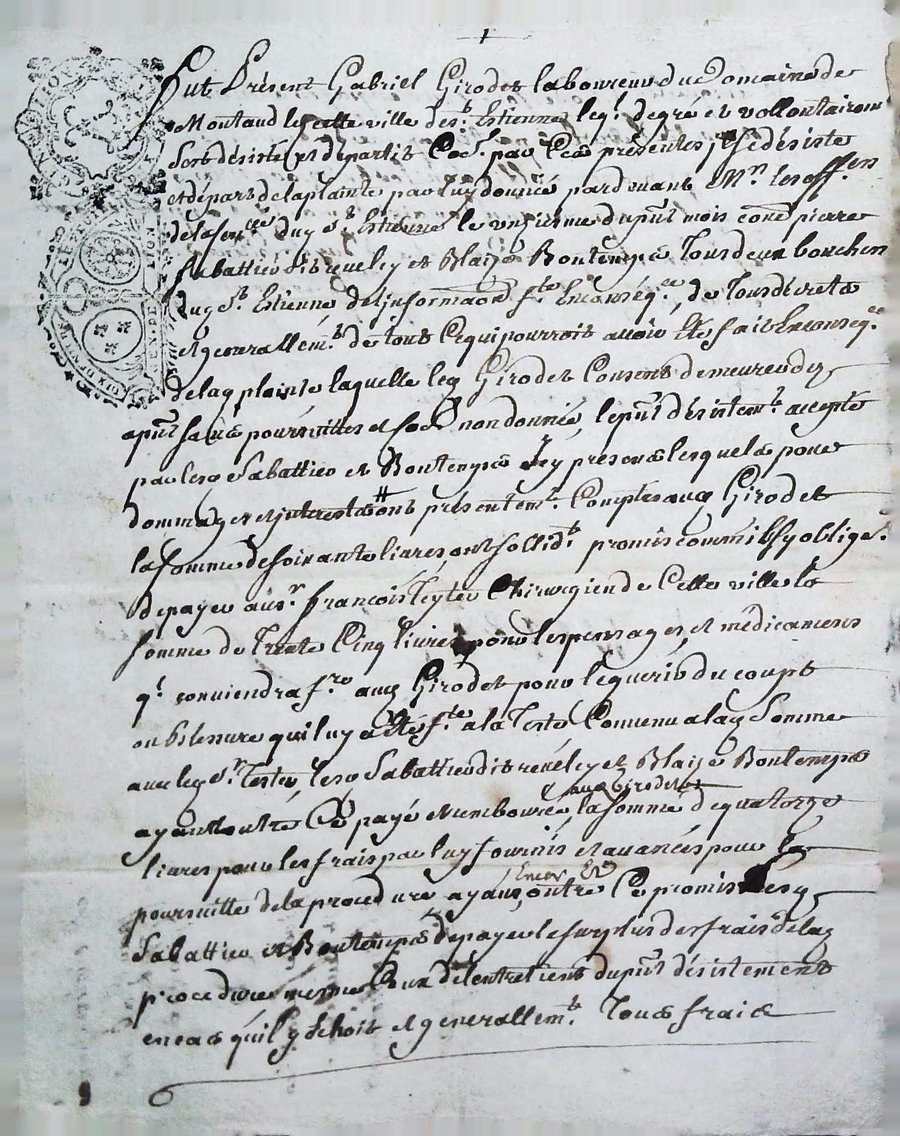 1
Fut Présent Gabriel Girodet laboureur du Domaine de
Montaud les cette ville de st Etienne leql degré et vollontairemt
sest désisté et départit Coe. par Ces présentes, se désiste
et départ de la plainte par luy donnée pardevant Mrs les offers
de la sen dud st Etienne le onzieme du put mois cone pierre
Sabattier dit reveley et Blaize Bontemps Tous deux bouchers
dud st Etienne de linformaon fte En conséqce, de Tous décrets
et generallemt de tout Ce qui pourroit avoir été fait En conseqce
de lad plainte laquelle led Girodet Consent demeurer dez
aput sans poursuittes et non donnée, le put désistemt accepté
par lesd Sabattier et Bontemps Icy présens lesquels pour
dommages et interests ont présentemt Compté aud Girodet
la somme de soixante livres ont sollidt promis comm ils sy obligent
de payer au sr françois teyter Chirurgien de Cette ville la
somme de Trente Cinq livres pour les pensages, et médicamens
ql conviendra fre aud Girodet pour le guérir du coupt
ou blessure quil luy a été fte a la Teste Convenu a lad Somme
avec led sr Tester, lesd Sabattier dit reveley et Blaize Bontemps
aud Girodet
ayant outre Ce payé et rembourcé, la somme de quatorze
livres pour les frais par luy fournis et avancés pour la
Encor Et
poursuitte de la procedure ayant, outre Ce promis lesd
Sabattier et Bontemps de payer le surplus des frais de lad
procedure mesme Ceux de lentretient du put désistement
en cas quil y Echoit et generallemt. Tous frais